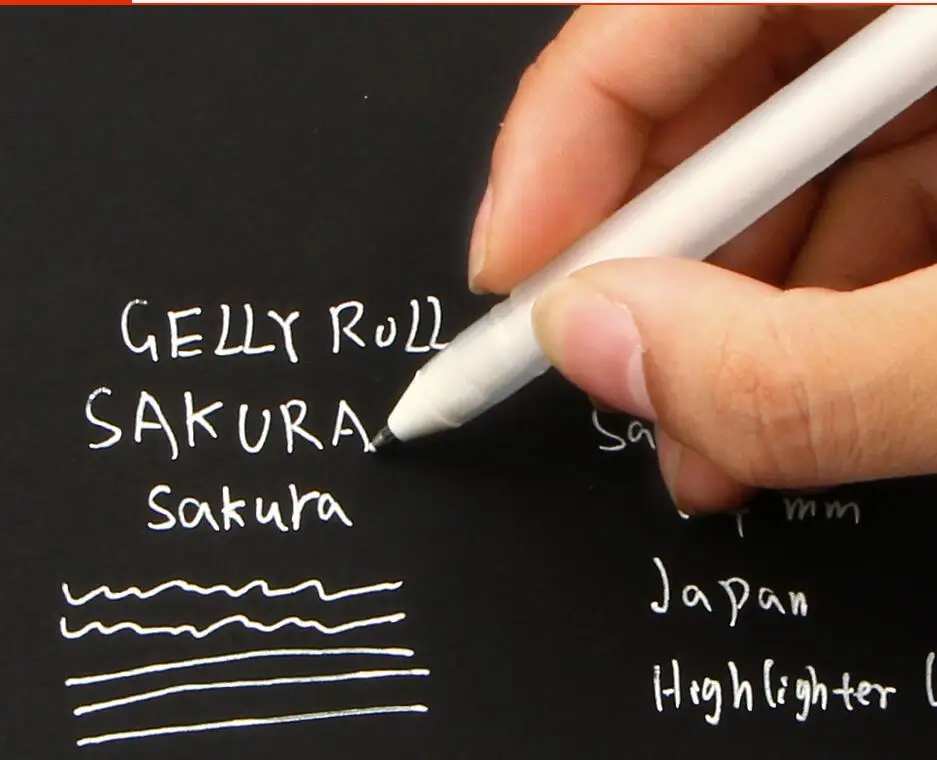 GELLY ROLL
SAKURA
sakura
mm
Japan
Highlighter